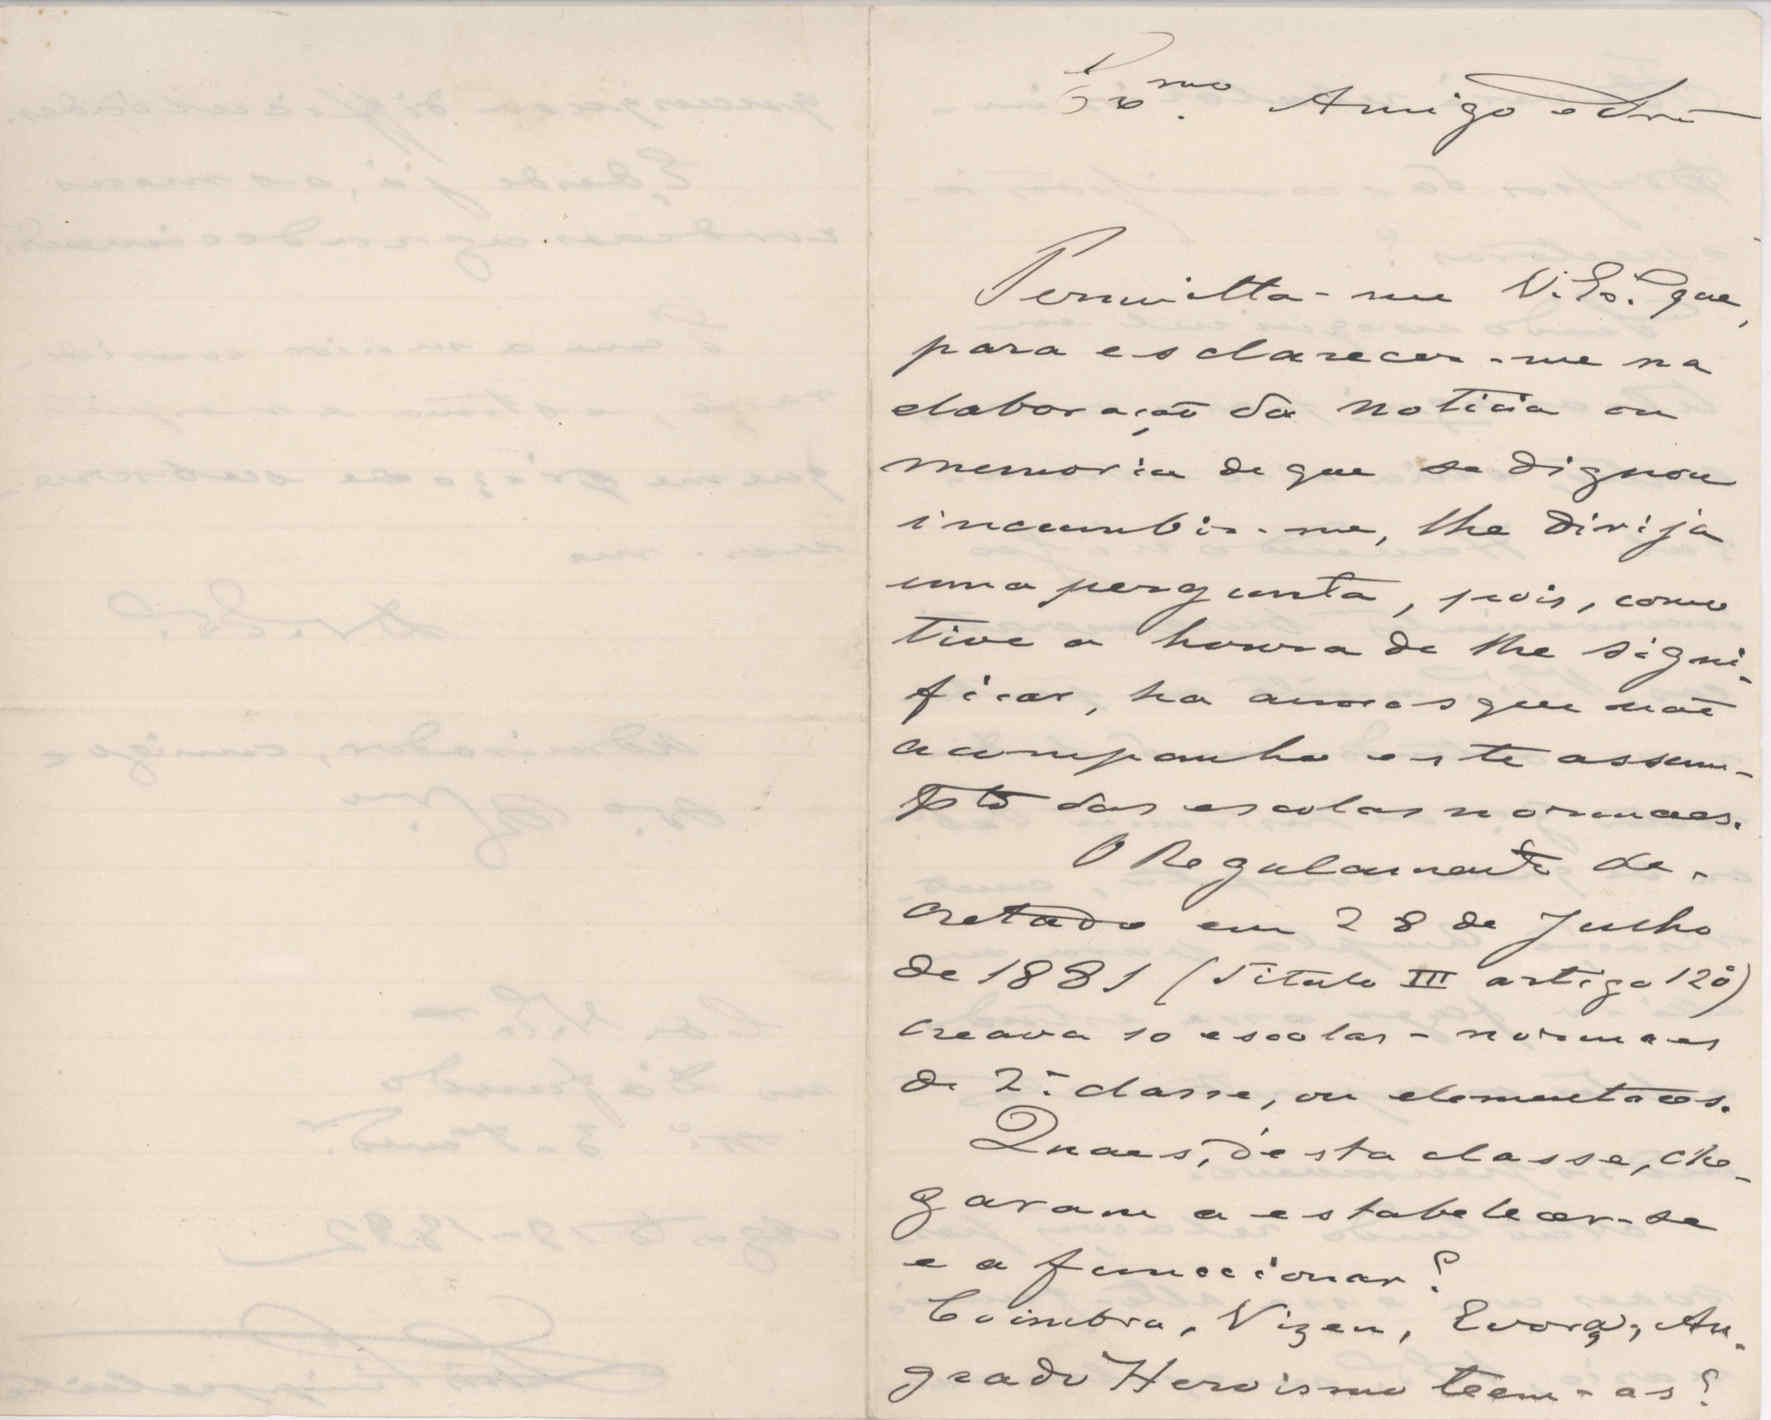 Ex.mo Amigo e Snr.
Permitta-me V. Ex.a que,
para esclarecer-me na
elaboração da noticia ou
memoria de que se dignou
incumbir-me, lhe dirija
uma pergunta, pois, como
tive a honra de lhe signi-
ficar, ha annos que não
acompanho este assum-
pto das escolas normaes.
O Regulamento de-
cretado em 28 de Julho
de 1881 (Titulo III artigo 12º)
creava 10 escolas-normaes
de 2.ª classe, ou elementares.
Quaes, d'esta classe, che-
garam a estabelecer-se
e a funccionar?
Coimbra, Vizeu, Evora, An-
gra do Heroismo teem-as?